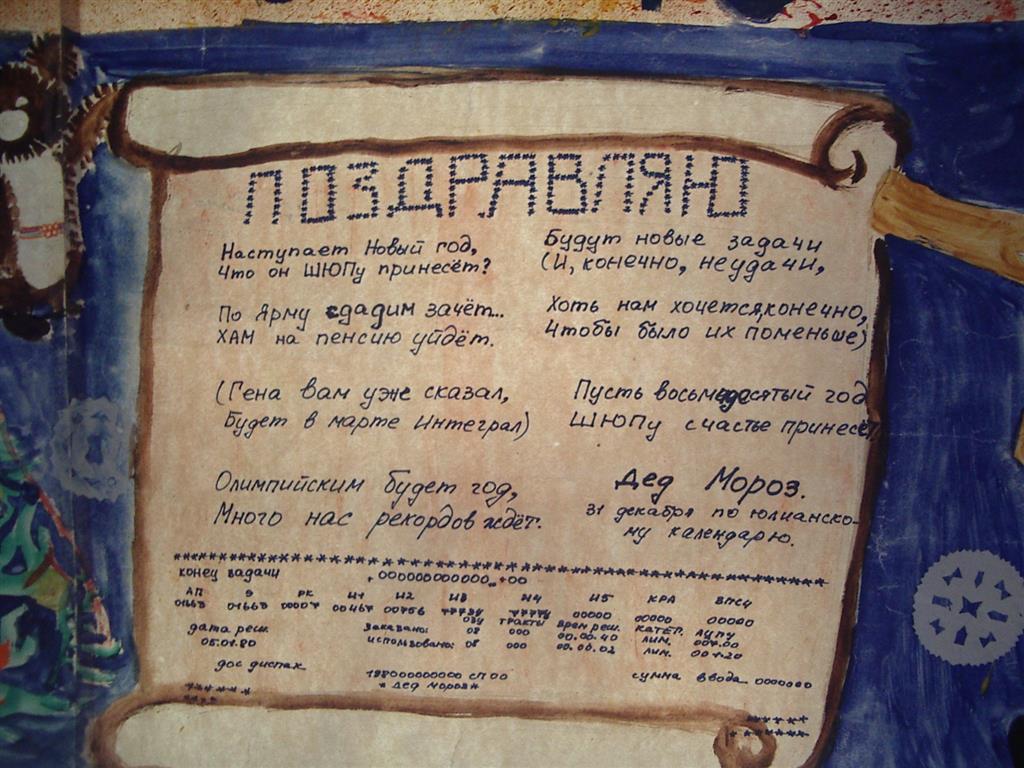 ПОЗДРАВЛЯЮ
Наступает Новый год,
Что он ШЮПу принесёт?
По Ярму сдадим зачёт...
ХАМ на пенсию уйдёт.
(Гена вам уже сказал,
Будет в марте Интеграл)
Олимпийским будет год,
Много нас рекордов ждёт.
Будут новые задачи
(И, конечно, неудачи,
Хоть нам хочется, конечно,
Чтобы было их поменьше)
Пусть восьмидесятый год
ШЮПу счастье принесёт
Дед Мороз.
31 декабря по юлианско-
му календарю.
****************************************************************
конец задачи +000000000000 +00
АП Э РК И1 И2 И3 И4 И5 КРА ВПСЧ
00007 00467 00756 00000 00000 00000
ОЗУ тракты Врем реш. КАТЕГ. АЦПУ
дата реш. заказано: 08 000 00.00.40 лим.
05.01.80 использовано: 08 000 00.00.02 лим. 001.20
дос диспак 198000000000 СП 00 сумма ввода 0000000
* дед мороз *